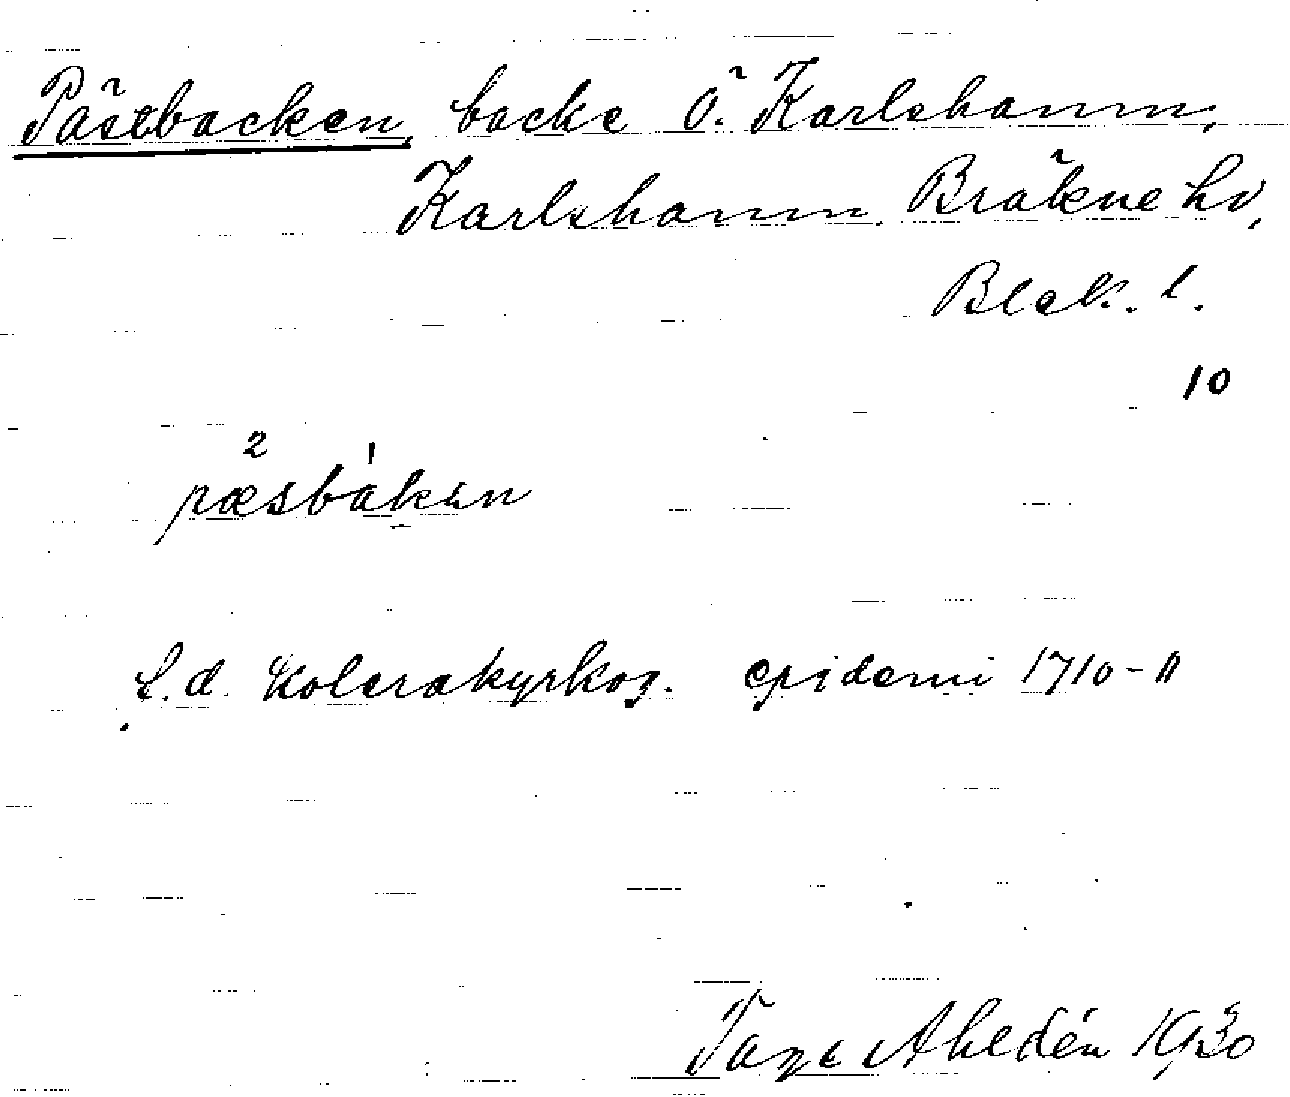 Päsebacken, backe Ö. Karlshamn,
Karlshamn, Bräkne hd,
Blek. l.
10
2 1
pæsbakən
f.d. kolerakyrkog. epidemi 1710-11
Tage Ahldén 1930